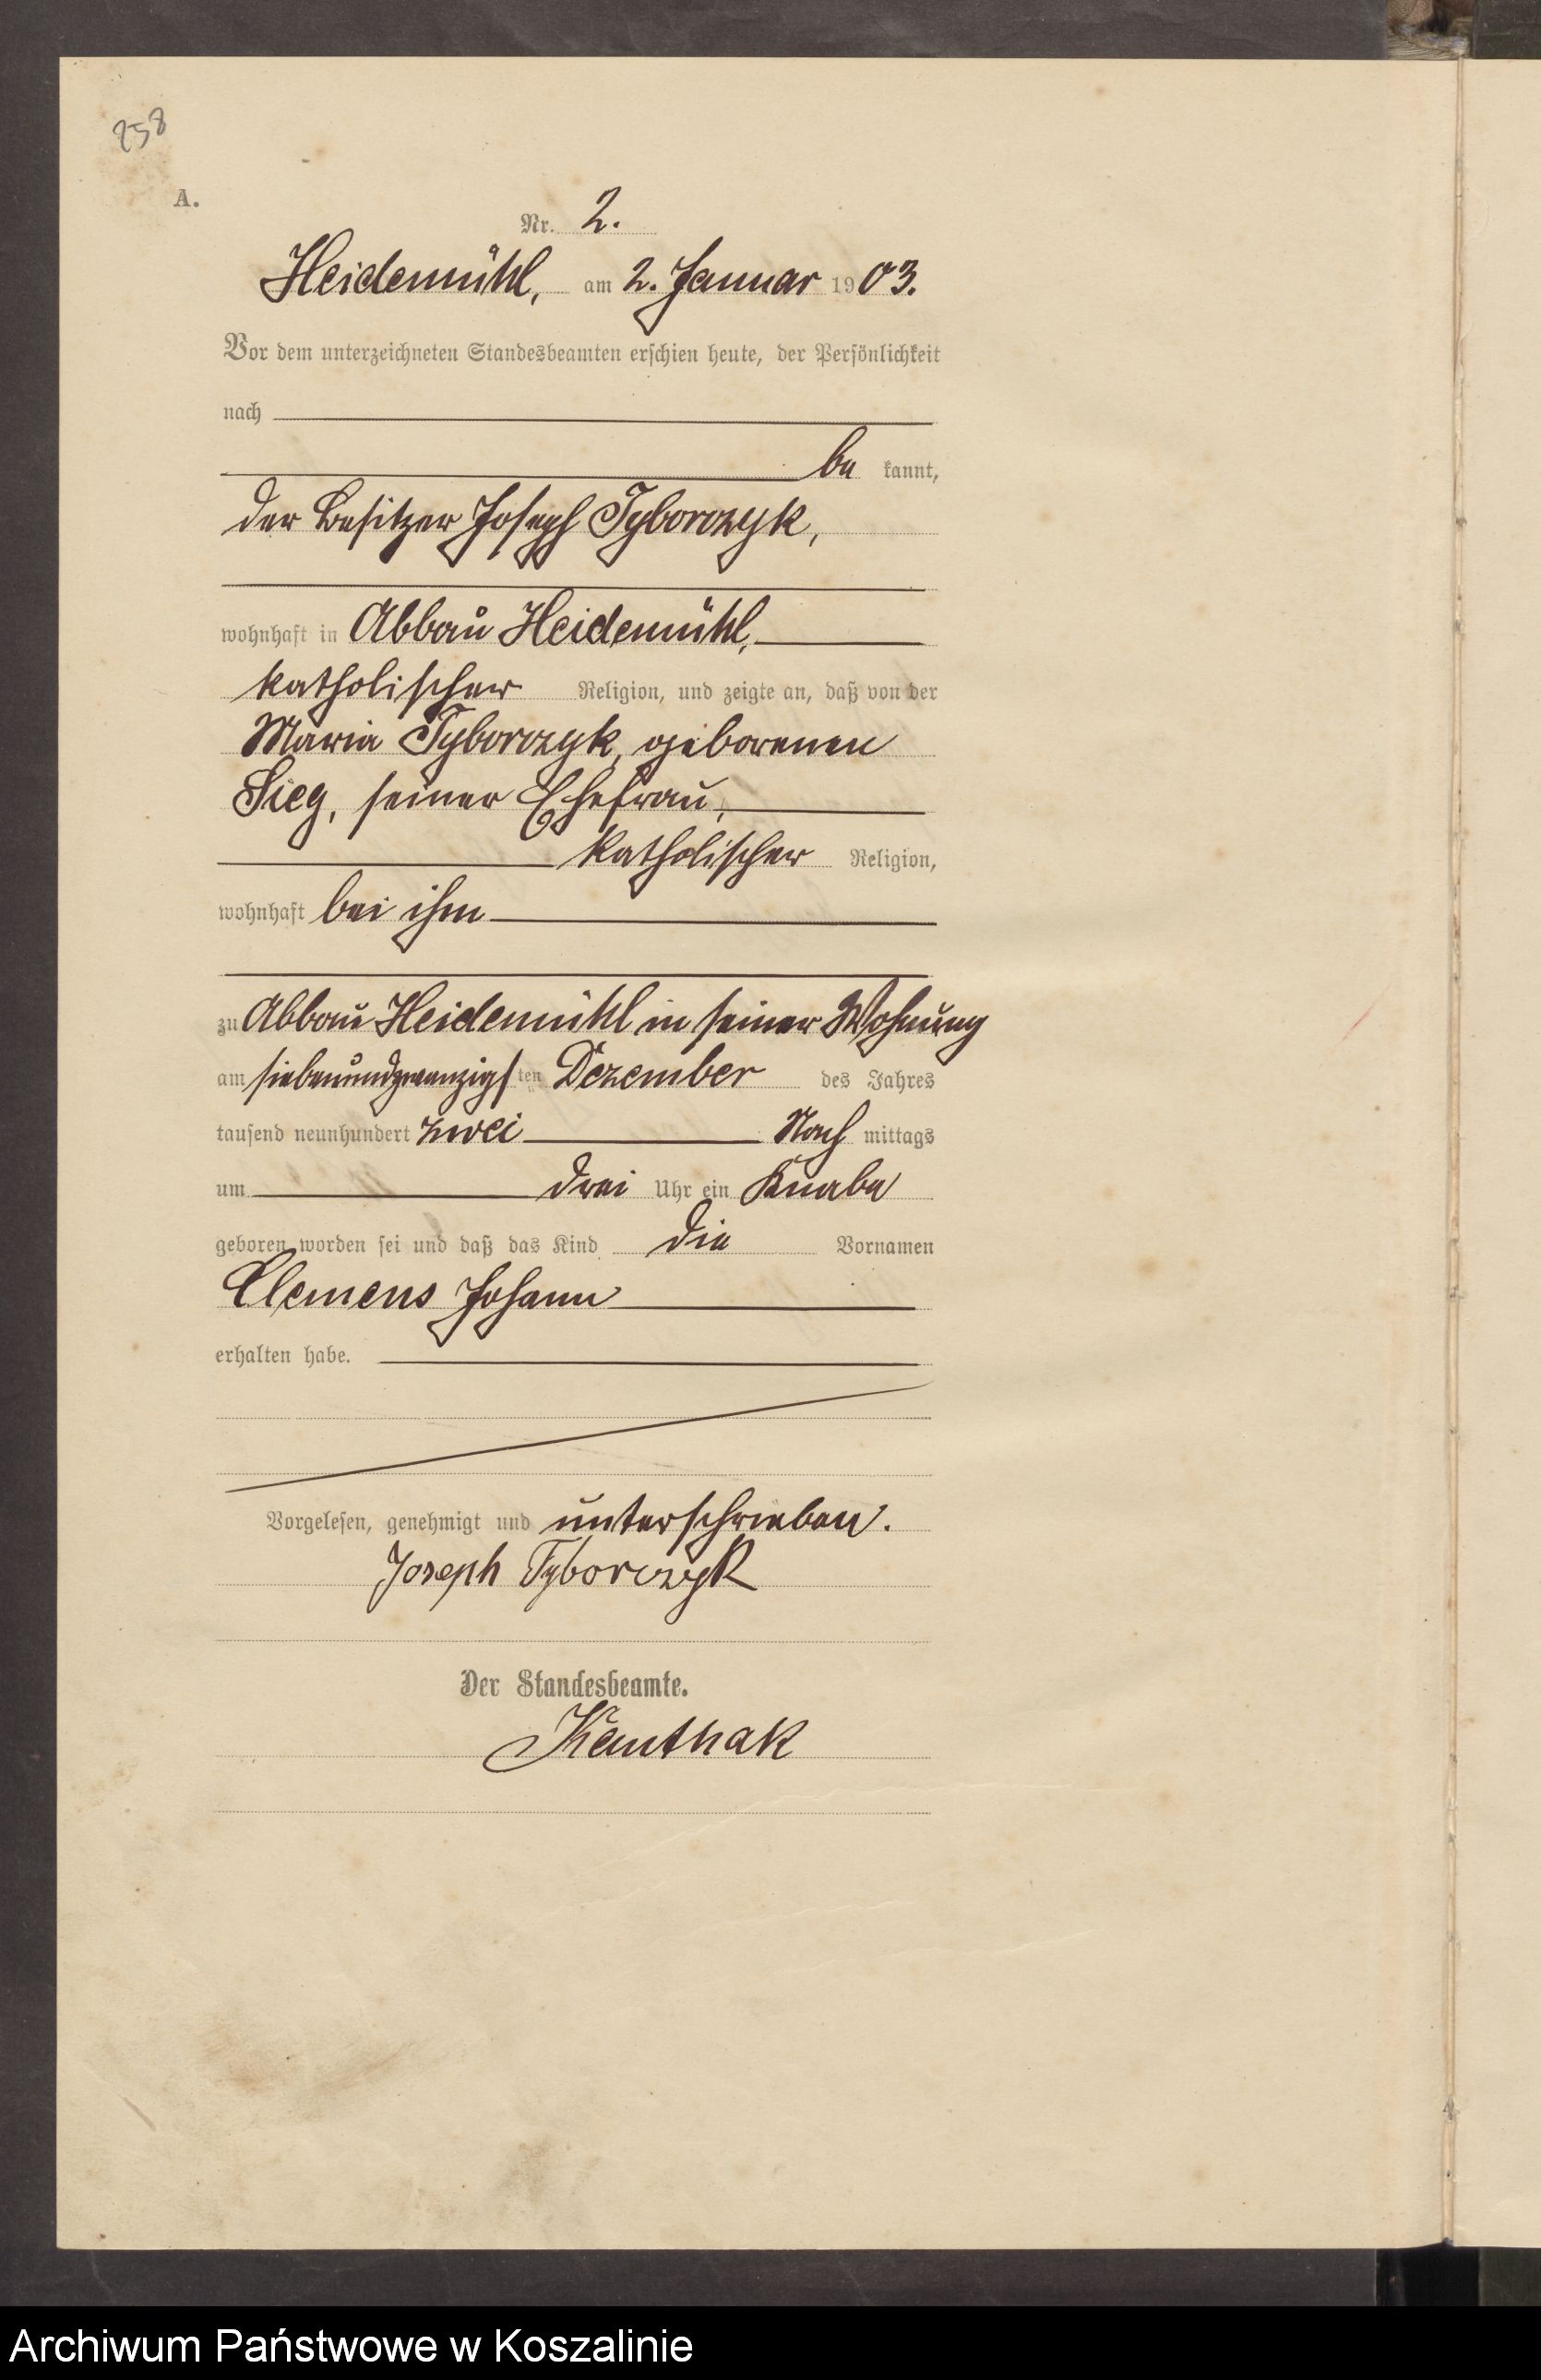 258
A.
Nr. 2.
Heidemühl, am 2. Januar 1903.
Vor dem unterzeichneten Standesbeamten erschien heute, der Persönlichkeit
nach
be kannt,
der Besitzer Joseph Tyborczyk,
wohnhaft in Abbau Heidemühl,
katholischer Religion, und zeigte an, daß von der
Maria Tyborczyk, geborenen
Sieg, seiner Ehefrau,
katholischer Religion,
wohnhaft bei ihm
zu Abbau Heidemühl in seiner Wohnung
am siebenundzwanzigsten Dezember des Jahres
tausend neunhundert zwei Nach mittags
um drei Uhr ein Knabe
geboren worden sei und daß das Kind die Vornamen
Clemens Johann
erhalten habe.
Vorgelesen, genehmigt und unterschrieben.
Joseph Tyborczyk
Der Standesbeamte.
Kauthak
Archiwum Państwowe w Koszalinie